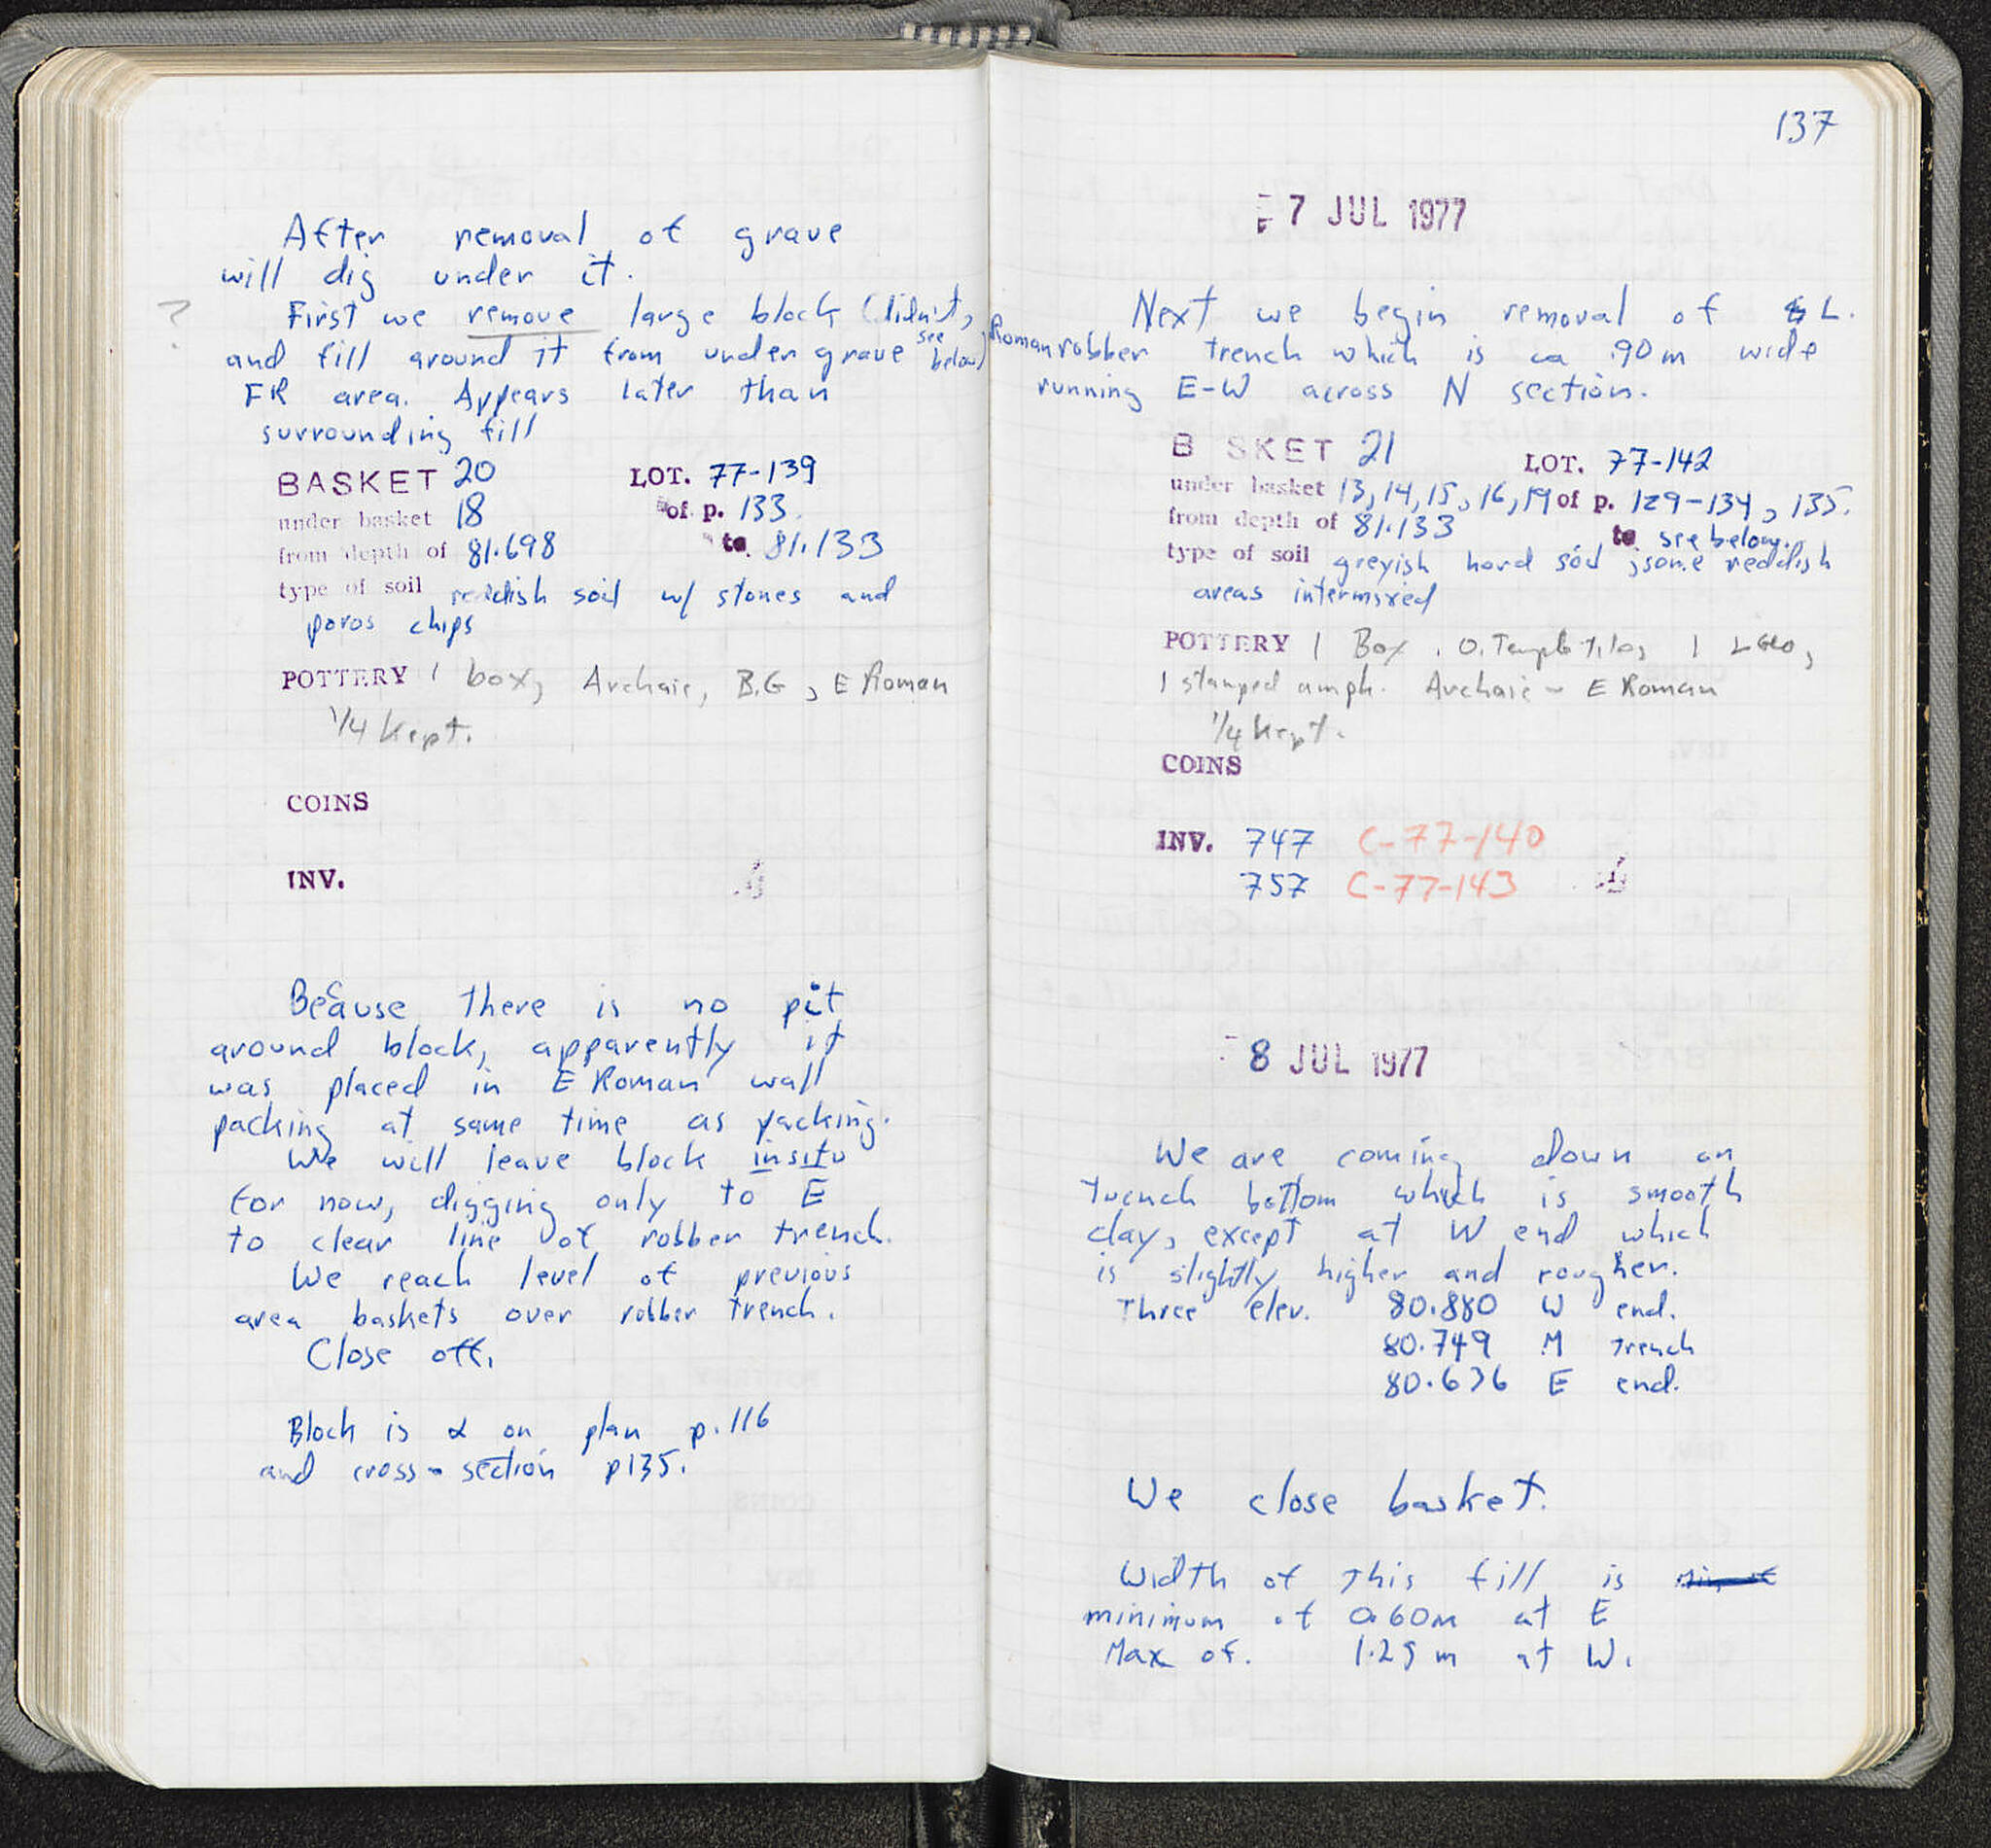 After removal of grave
will dig under it.
? First we remove large block (didn't, see below)
and fill around it from under grave
ER area. Appears later than
surrounding fill
BASKET 20 LOT. 77-139
under basket 18 of p. 133
from depth of 81.698 to 81.133
type of soil reddish soil w/ stones and
poros chips
POTTERY 1 box, Archaic, B.G, E Roman
1/4 Kept.
COINS
INV.
Because there is no pit
around block, apparently it
was placed in E Roman wall
packing at same time as packing.
We will leave block in situ
for now, digging only to E
to clear line of robber trench.
We reach level of previous
area baskets over robber trench.
Close off.
Block is α on plan p. 116
and cross-section p135.
137
7 JUL 1977
Next we begin removal of L.
Roman robber trench which is ca .90m wide
running E-W across N section.
B SKET 21 LOT. 77-142
under basket 13, 14, 15, 16, 19 of p. 129-134, 135.
from depth of 81.133 to see below.
type of soil greyish hard soil; some reddish
areas intermixed
POTTERY 1 Box. O. Temple tiles, 1 LGeo,
1 stamped amph. Archaic - E Roman
1/4 Kept.
COINS
INV. 747 C-77-140
757 C-77-143
8 JUL 1977
We are coming down on
trench bottom which is smooth
clay, except at W end which
is slightly higher and rougher.
Three elev. 80.880 W end.
80.749 M trench
80.636 E end.
We close basket.
Width of this fill is
minimum of 0.60m at E
Max of. 1.25 m at W.